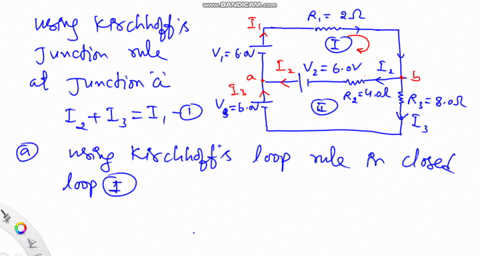 www.BANDICAM.com
using Kirchhoff's
Junction rule
at Junction 'a'
I2 + I3 = I1 - ①
I1
R1 = 2Ω
I
V1 = 6.0V
a
I2
V2 = 6.0V
I2
b
I3
II
R2 = 4.0Ω
R3 = 8.0Ω
V3 = 6.0V
I3
ⓐ using Kirchhoff's loop rule in closed
loop I